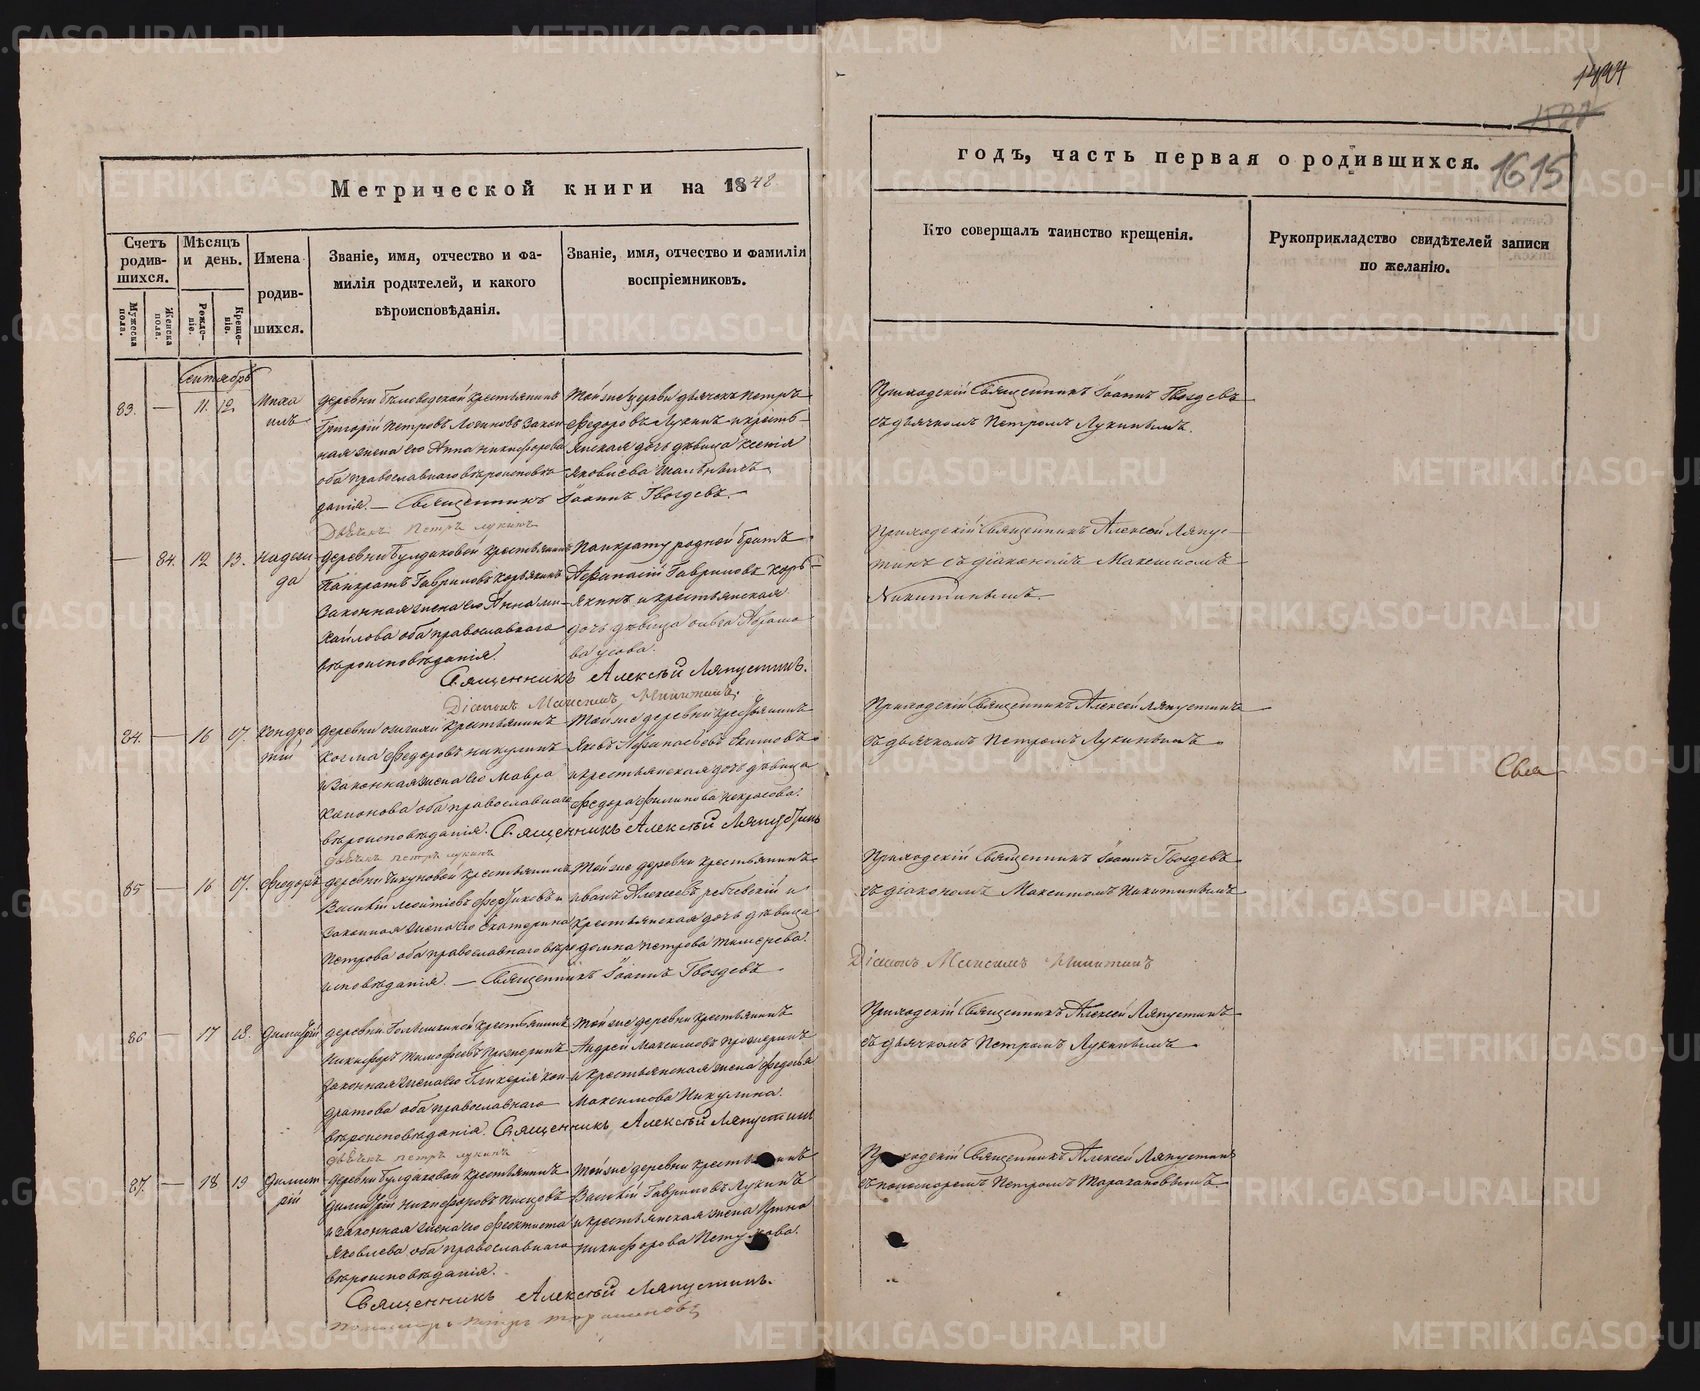 1494
1587
1615
Метрической книги на 1848
годъ, часть первая о родившихся.
Счетъ родив-шихся.
Мужеска пола.
Женска пола.
Мѣсяцъ и день.
Рожде-ніе.
Креще-ніе.
Имена родив-шихся.
Званіе, имя, отчество и фа-
милія родителей, и какого
вѣроисповѣданія.
Званіе, имя, отчество и фамилія
воспріемниковъ.
Кто совершалъ таинство крещенія.
Рукоприкладство свидѣтелей записи
по желанію.
Сентябрь
83. — 11. 12. Миха
илъ
деревни крестьянинъ
Григорій Петровъ Логиновъ закон
ная жена его Анна Никифорова
оба православнаго вѣроисповѣ
данія. — Священникъ Іоаннъ Гвоздевъ.
Дьячекъ Петръ Лукинъ
Той же церкви дьячокъ Петръ
Федоровъ Лукинъ и кресть-
янская дочь дѣвица Ксенія
Яковлева
Приходскій Священникъ Іоаннъ Гвоздевъ
съ дьячкомъ Петромъ Лукинымъ.
— 84. 12 13. Надеж
да
деревни Булдаковой крестьянинъ
Панкратъ Гавриловъ Корякинъ
законная жена его Анна Ми-
хайлова оба православнаго
вѣроисповѣданія.
Священникъ Алексѣй Ляпустинъ.
Діаконъ Максимъ Никитинъ.
Панкрату родной братъ
Афанасій Гавриловъ Коря-
кинъ и крестьянская
дочь дѣвица Ольга Абрамо
ва Усова.
Приходскій Священникъ Алексѣй Ляпус-
тинъ съ діакономъ Максимомъ
Никитинымъ.
84. — 16 17. Кондра
тій
деревни крестьянинъ
Козма Федоровъ Никулинъ
и законная жена его Мавра
оба православнаго
вѣроисповѣданія. Священникъ Алексѣй Ляпустинъ
дьячекъ Петръ Лукинъ
Той же деревни крестьянинъ
Яковъ Афанасьевъ Екимовъ
и крестьянская дочь дѣвица
Федора Филипова Некрасова.
Приходскій Священникъ Алексѣй Ляпустинъ
съ дьячкомъ Петромъ Лукинымъ.
85 — 16 17. Феодоръ
деревни Чикуновой крестьянинъ
Василій Леонтіевъ и
законная жена его Екатерина
Петрова оба православнаго вѣро
исповѣданія. — Священникъ Іоаннъ Гвоздевъ.
Той же деревни крестьянинъ
Иванъ Алексѣевъ и
крестьянская дочь дѣвица
Домна Петрова
Приходскій Священникъ Іоаннъ Гвоздевъ
съ діакономъ Максимомъ Никитинымъ
Діаконъ Максимъ Никитинъ
86 — 17 18. Димитрій
деревни крестьянинъ
Никифоръ Тимофеевъ
законная жена его Гликерія Кон
дратова оба православнаго
вѣроисповѣданія. Священникъ Алексѣй Ляпустинъ
дьячекъ Петръ Лукинъ
Той же деревни крестьянинъ
Андрей Максимовъ
и крестьянская жена Федосья
Максимова Никулина.
Приходскій Священникъ Алексѣй Ляпустинъ
съ дьячкомъ Петромъ Лукинымъ.
87. — 18 19 Димит
рій
деревни Булдаковой крестьянинъ
Димитрій Никифоровъ
и законная жена его Феоктиста
Яковлева оба православнаго
вѣроисповѣданія.
Священникъ Алексѣй Ляпустинъ.
Пономарь Петръ Тарахановъ
Той же деревни крестьянинъ
Василій Гавриловъ Лукинъ
и крестьянская жена Ирина
Никифорова Петухова.
Приходскій Священникъ Алексѣй Ляпустинъ
съ пономаремъ Петромъ Тарахановымъ.
Свя
METRIKI.GASO-URAL.RU